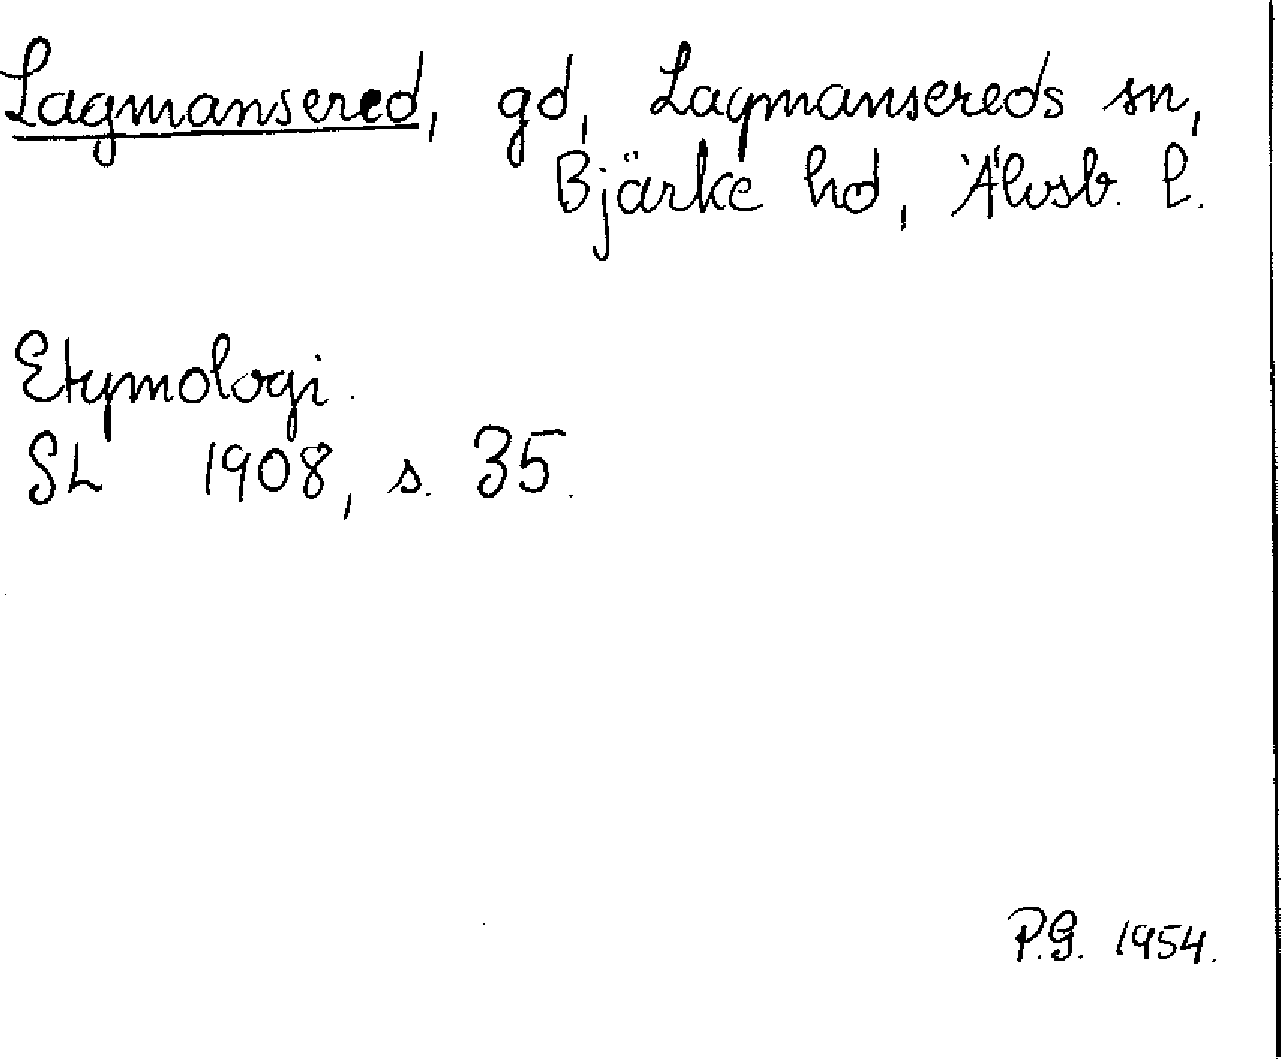 Lagmansered, gd, Lagmansereds sn,
Bjärke hd, Älvsb. l.
Etymologi.
SL 1908, s. 35.
P.G. 1954.